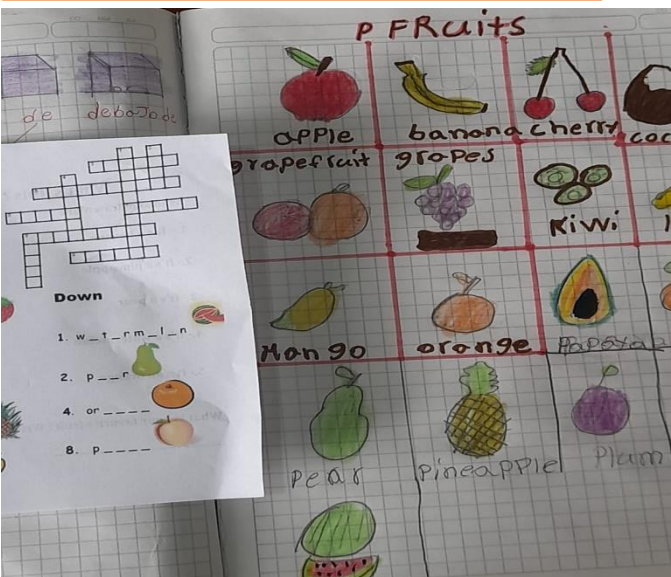 P FRuits
de debajo de
apple banana cherry coc
grapefruit grapes
Kiwi
Mango orange Papaya
Pear Pineapple Plum
Down
1. w_t_rm_l_n
2. p__r
4. or____
8. p____